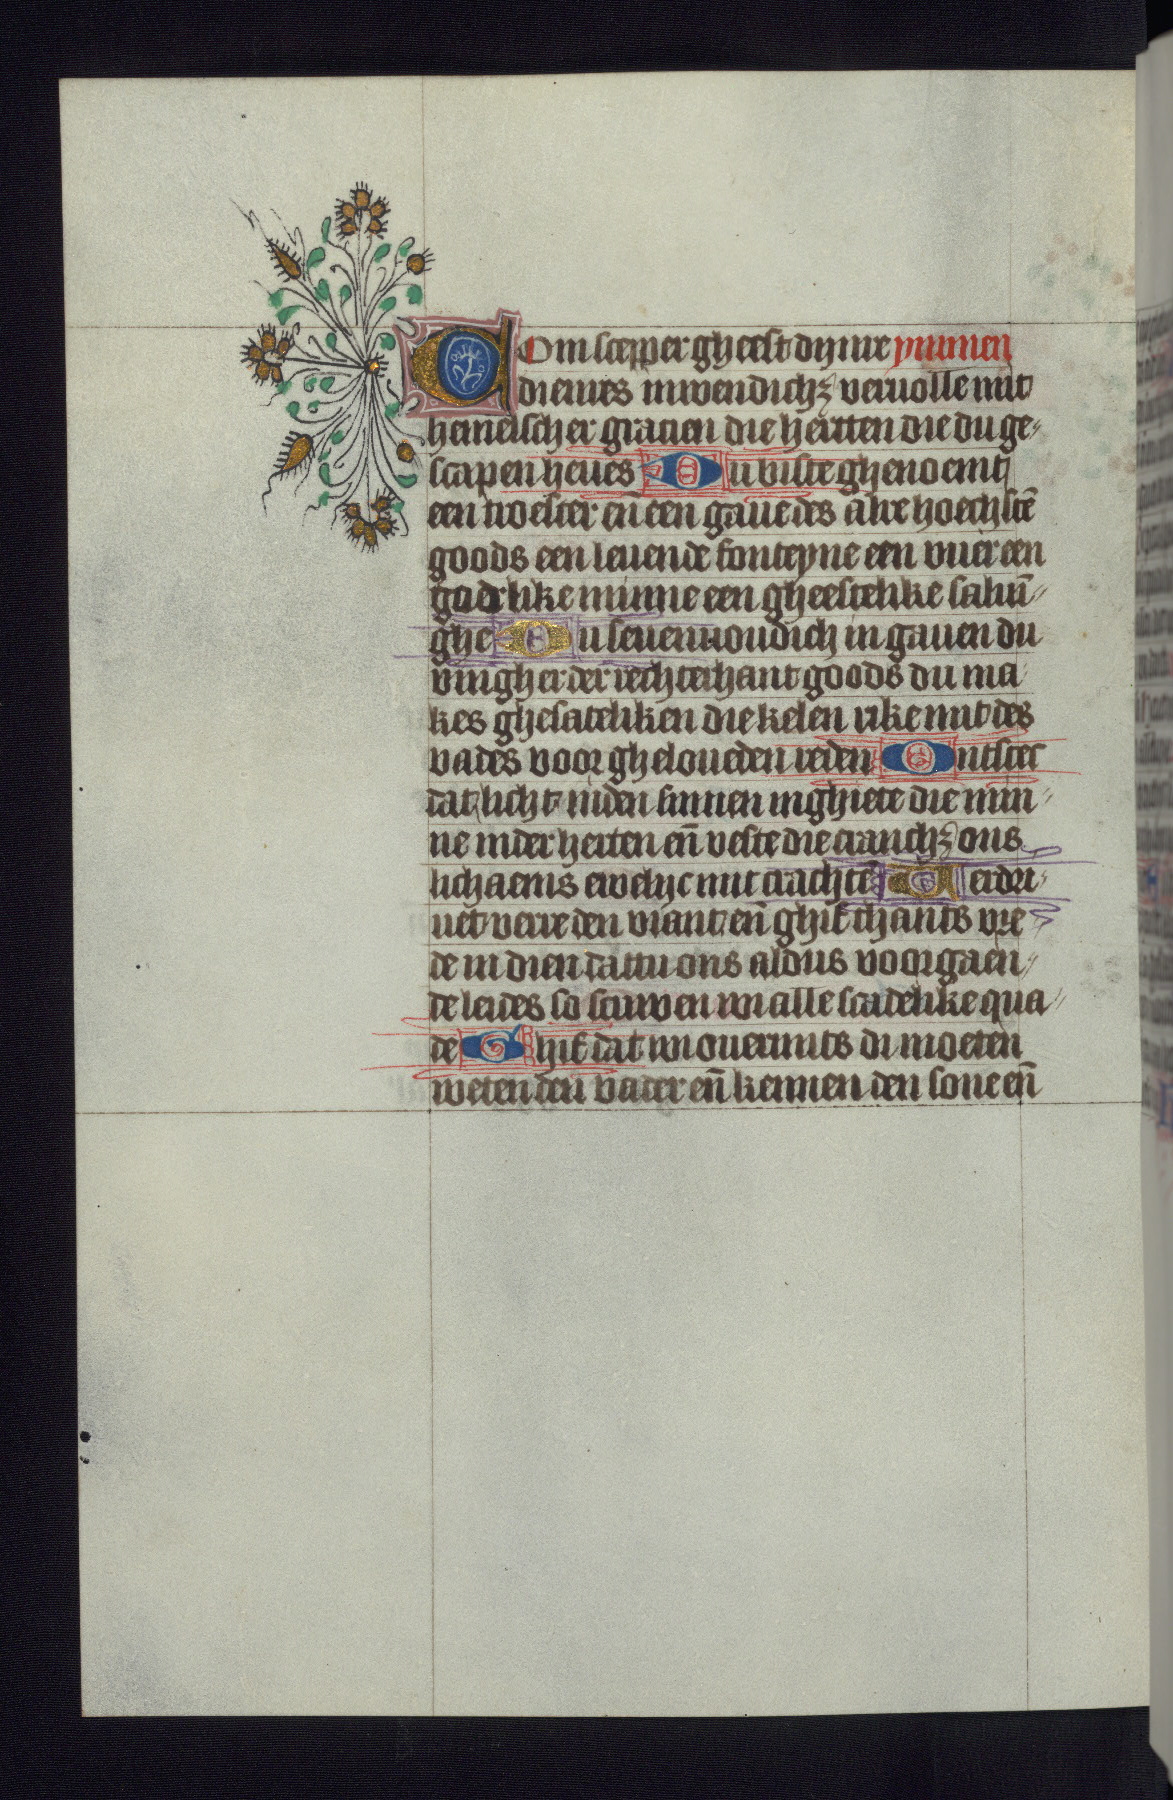 COm scepper gheest dynre ymmen
dienres inwendichꝫ vervolle mit
hemelscher gracien die hertten die du ge-
scapen heves Du biste ghenoemt
een troester eñ een gave des alre hoechstē
goods een levende fonteyne een vuer een
godlike minne een gheestelike salvī-
ghe Du sevenvoudich in gaven du
vingher der rechterhant goods du ma
kes ghesateliken die kelen rike mit des
vades voor gheloveden reden Ontstec
dat licht inden sinnen inghiete die min-
ne in der herten eñ veste die cranchꝫ ons
lichaems ewelyc mit crachtē Verdri-
vet verre den viant eñ ghif thants vre
de in dien dattu ons aldus voorgaen-
de leides so scuwen wi alle scadelike qua-
de Ghif dat wi overmits di moeten
weten den vader eñ kennen den sone eñ